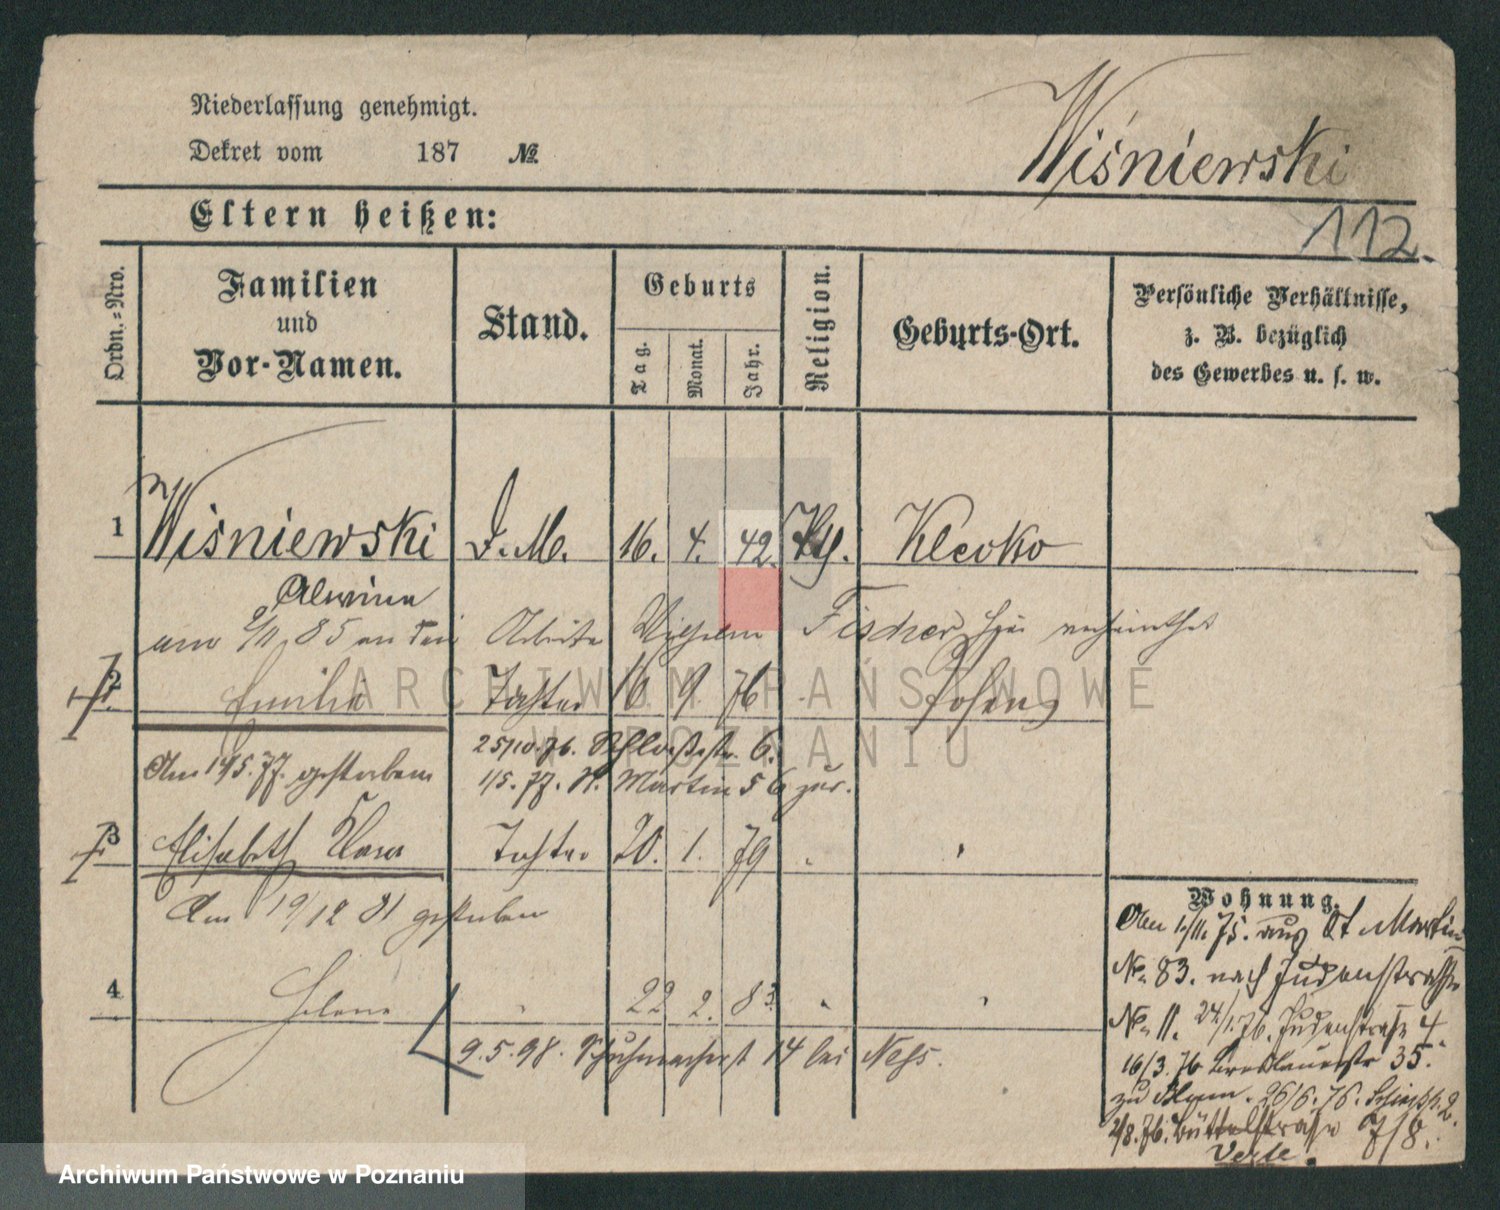 Niederlassung genehmigt.
Dekret vom 187 №
Wiśniewski
Eltern heißen:
112.
Ordn.-Nro.
Familien
und
Vor-Namen.
Stand.
Geburts
Tag.
Monat.
Jahr.
Religion.
Geburts-Ort.
Persönliche Verhältnisse,
z. B. bezüglich
des Gewerbes u. s. w.
1 Wiśniewski D. M. 16. 4. 42. Klecko
Alwina
am 85 an den Wilhelm Fischer
2 Emilie Tochter 16 9. 76 Posen
25/10.76. Schloßstr. 6.
Am 19/5.77. gestorben
1/5. 77. St. Martin 56 zur.
3 Elisabeth Clara Tochter 20. 1. 79
Am 19/12 81 gestorben
4 Helene 22 2. 83.
9. 5. 98. Schuhmacherst 14 bei
Wohnung.
Am 1./11. 75. aus St Martin
No. 83. nach Judenstrasse
No. 11. 24/1.76. Judenstraße 4.
16/3. 76 Breslauerstr 35.
zu 26/6. 76. 2.
2/8. 76. Büttelstrasse 7/8.
ARCHIWUM PAŃSTWOWE
W POZNANIU
Archiwum Państwowe w Poznaniu